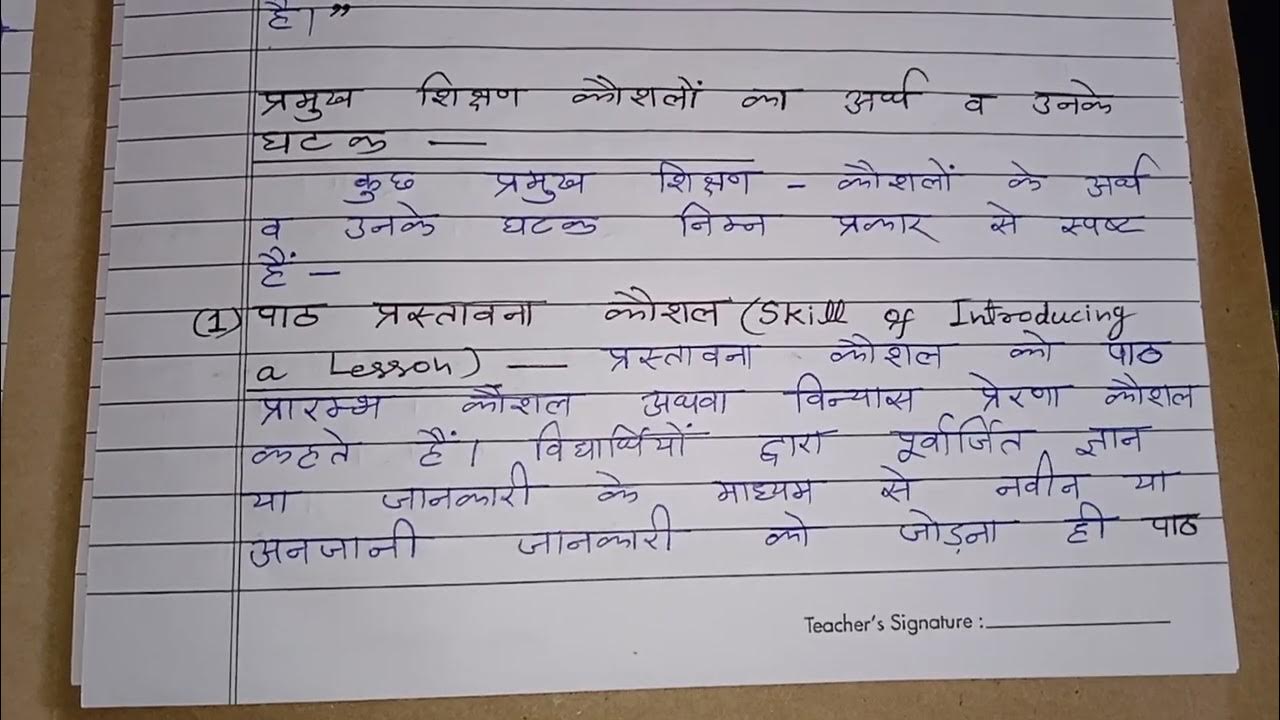 है।”
प्रमुख शिक्षण कौशलों का अर्थ व उनके
घटक —
कुछ प्रमुख शिक्षण - कौशलों के अर्थ
व उनके घटक निम्न प्रकार से स्पष्ट
हैं —
(1) पाठ प्रस्तावना कौशल (Skill of Introducing
a Lesson) — प्रस्तावना कौशल को पाठ
प्रारम्भ कौशल अथवा विन्यास प्रेरणा कौशल
कहते हैं। विद्यार्थियों द्वारा पूर्वार्जित ज्ञान
या जानकारी के माध्यम से नवीन या
अनजानी जानकारी को जोड़ना ही पाठ
Teacher's Signature :